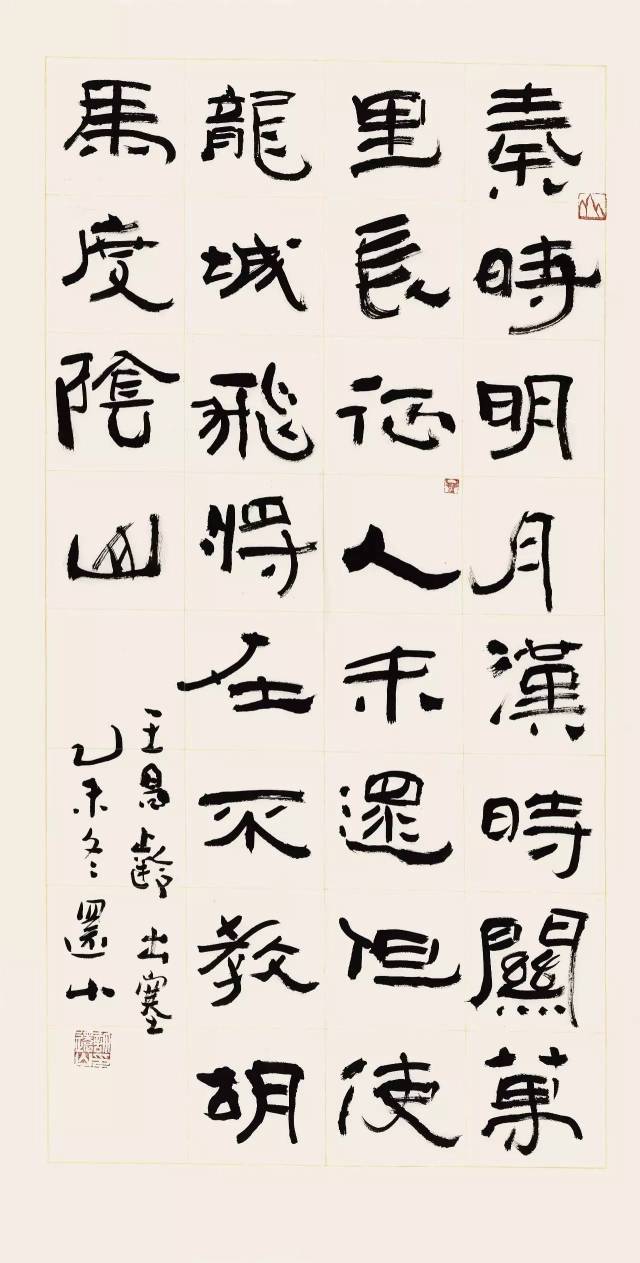 秦時明月漢時關萬
里長征人未還但使
龍城飛將在不教胡
馬度陰山
王昌齡出塞
乙未冬還山